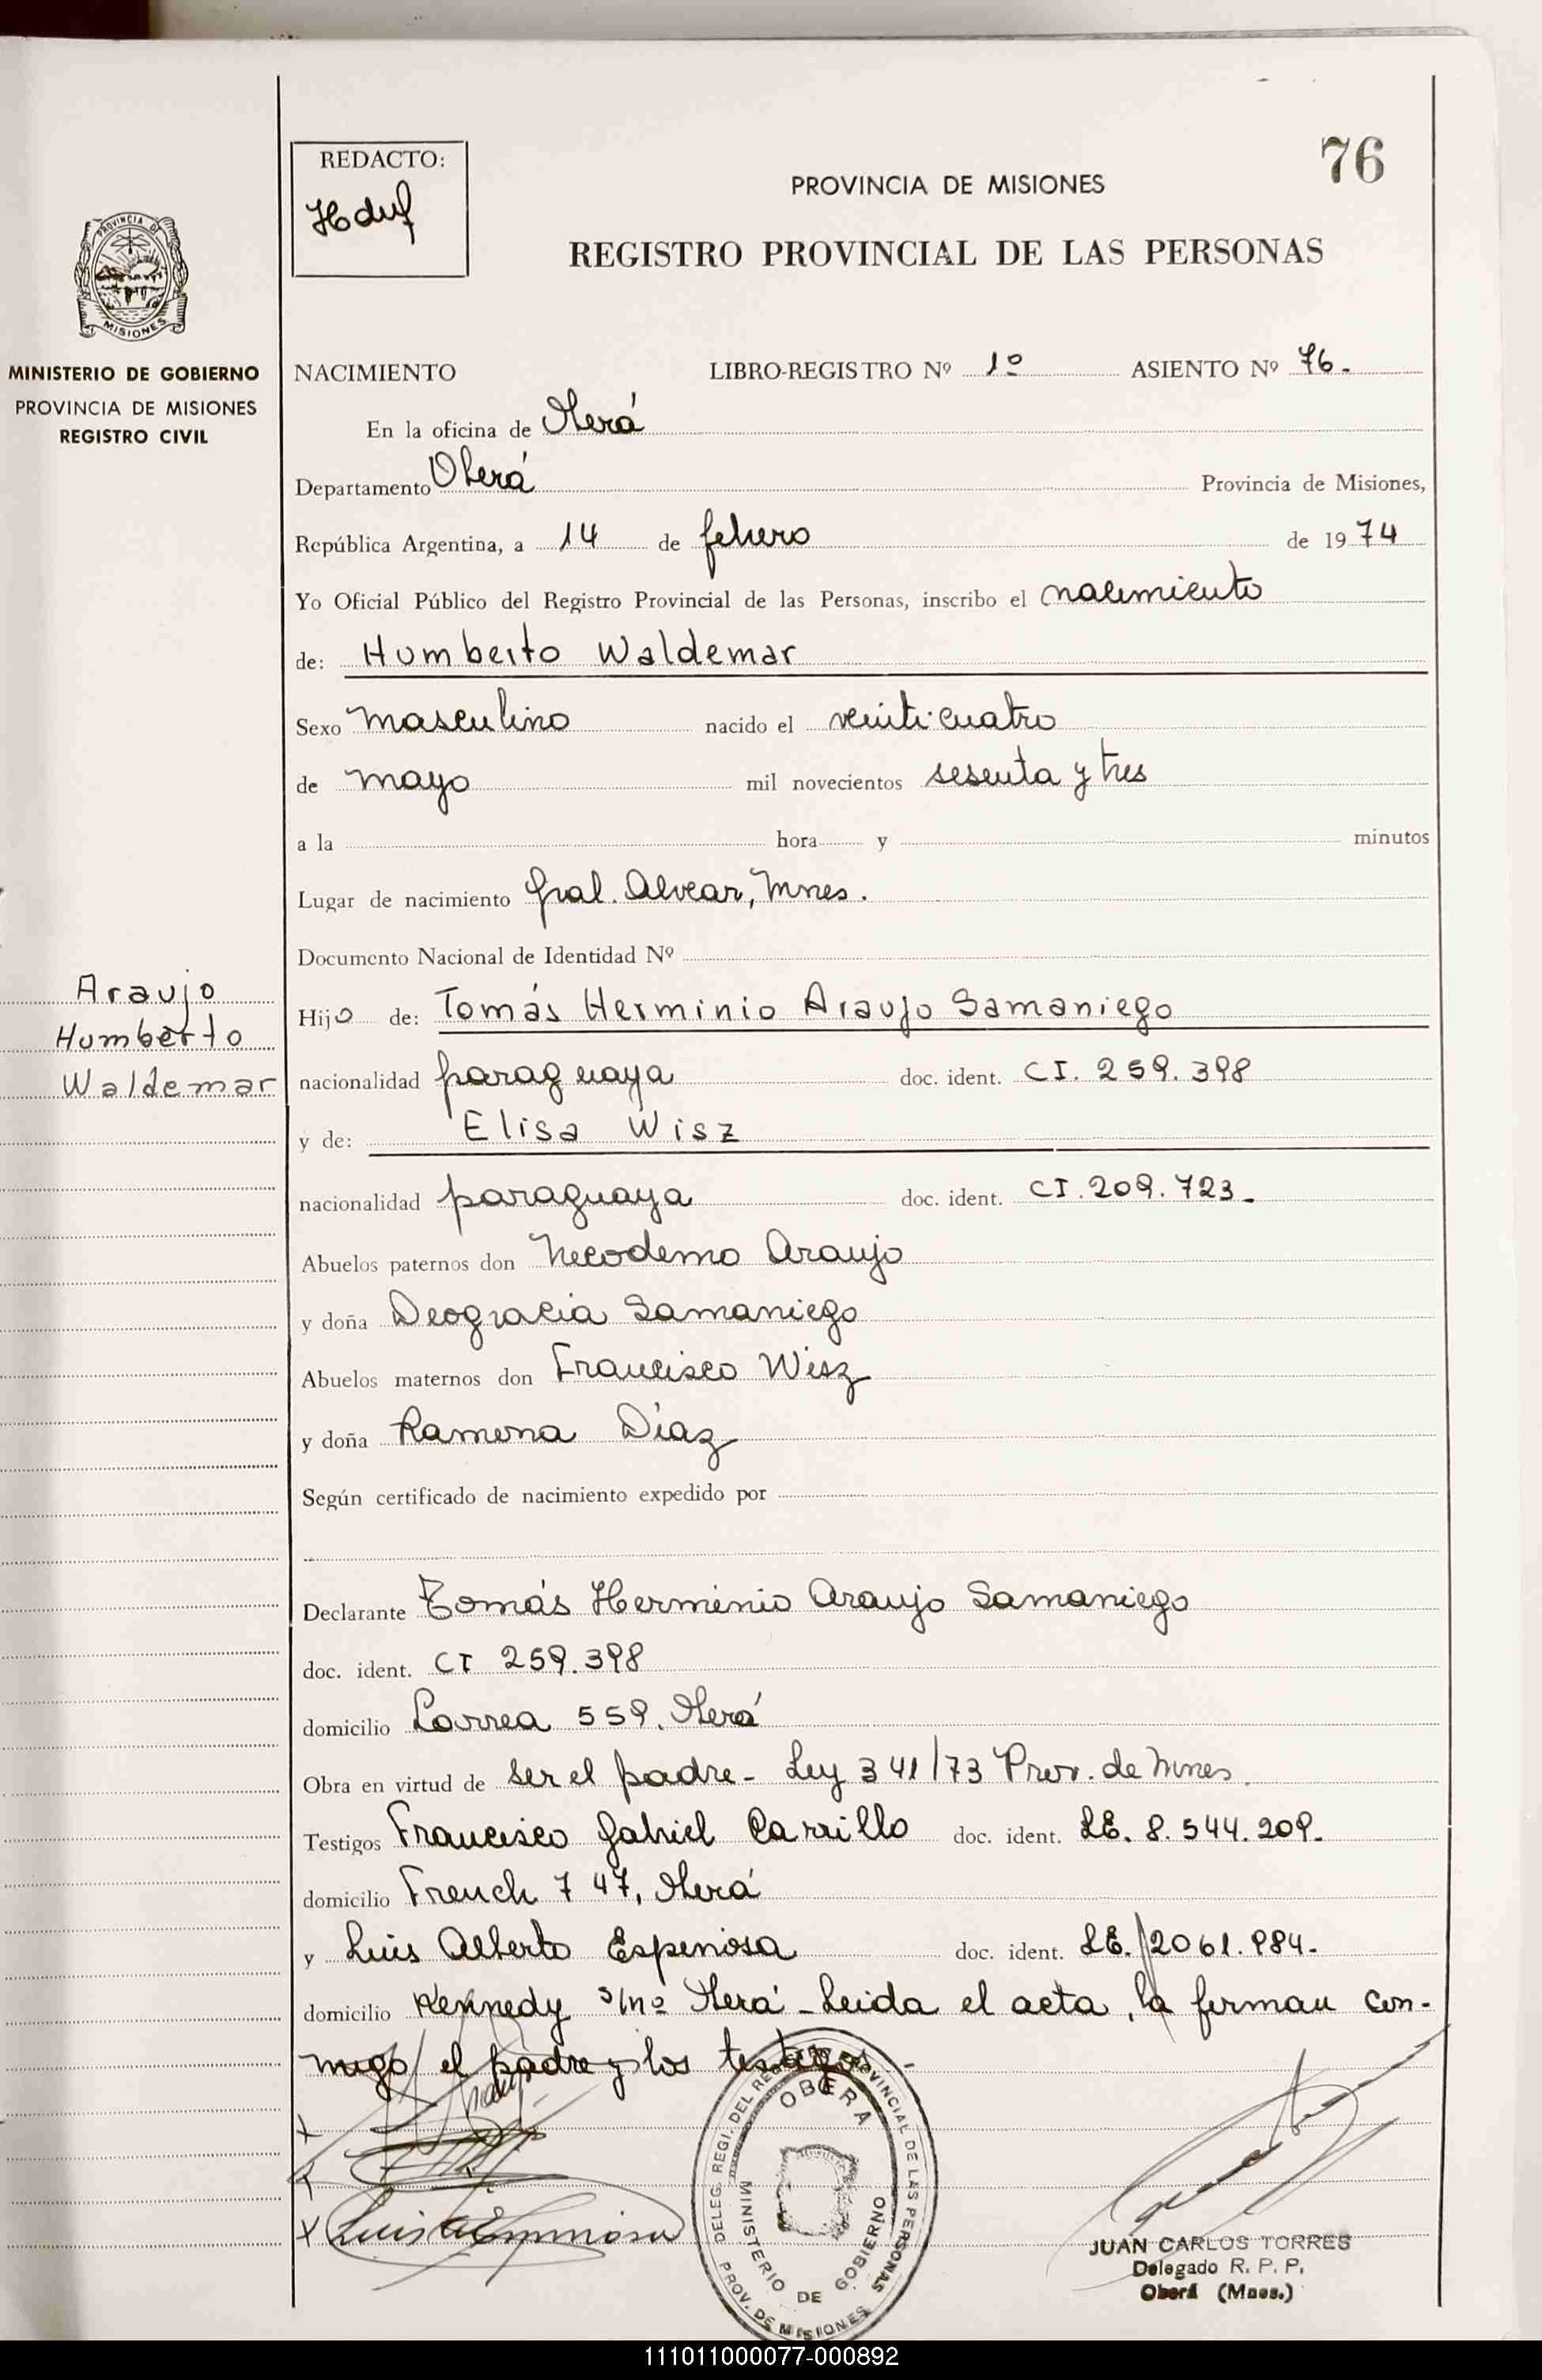 76
REDACTO:
PROVINCIA DE MISIONES
REGISTRO PROVINCIAL DE LAS PERSONAS
PROVINCIA DE
MISIONES
MINISTERIO DE GOBIERNO
PROVINCIA DE MISIONES
REGISTRO CIVIL
NACIMIENTO LIBRO-REGISTRO Nº 1º ASIENTO Nº 76.
En la oficina de Oberá
Departamento Oberá Provincia de Misiones,
República Argentina, a 14 de febrero de 1974
Yo Oficial Público del Registro Provincial de las Personas, inscribo el nacimiento
de: Humberto Waldemar
Sexo masculino nacido el veinticuatro
de mayo mil novecientos sesenta y tres
a la hora y minutos
Lugar de nacimiento Gral. Alvear, Mnes.
Documento Nacional de Identidad Nº
Araujo
Humberto
Waldemar
Hijo de: Tomás Herminio Araujo Samaniego
nacionalidad paraguaya doc. ident. CI. 259.398
y de: Elisa Wisz
nacionalidad paraguaya doc. ident. CI. 209.723.
Abuelos paternos don Necodemo Araujo
y doña Deogracia Samaniego
Abuelos maternos don Francisco Wisz
y doña Ramona Díaz
Según certificado de nacimiento expedido por
Declarante Tomás Herminio Araujo Samaniego
doc. ident. CI 259.398
domicilio Larrea 559, Oberá
Obra en virtud de ser el padre - Ley 341/73 Prov. de Mnes.
Testigos Francisco Gabriel Carrillo doc. ident. LE. 8.544.209.
domicilio French 747, Oberá
y Luis Alberto Espinosa doc. ident. LE. 2061.984.
domicilio Kennedy s/nº Oberá - Leida el acta, la firman con-
migo el padre y los testigos -
DELEG. REGI. DEL REGISTRO PROVINCIAL DE LAS PERSONAS
OBERA
MINISTERIO DE GOBIERNO
PROV. DE MISIONES
JUAN CARLOS TORRES
Delegado R. P. P.
Oberá (Mnes.)
111011000077-000892